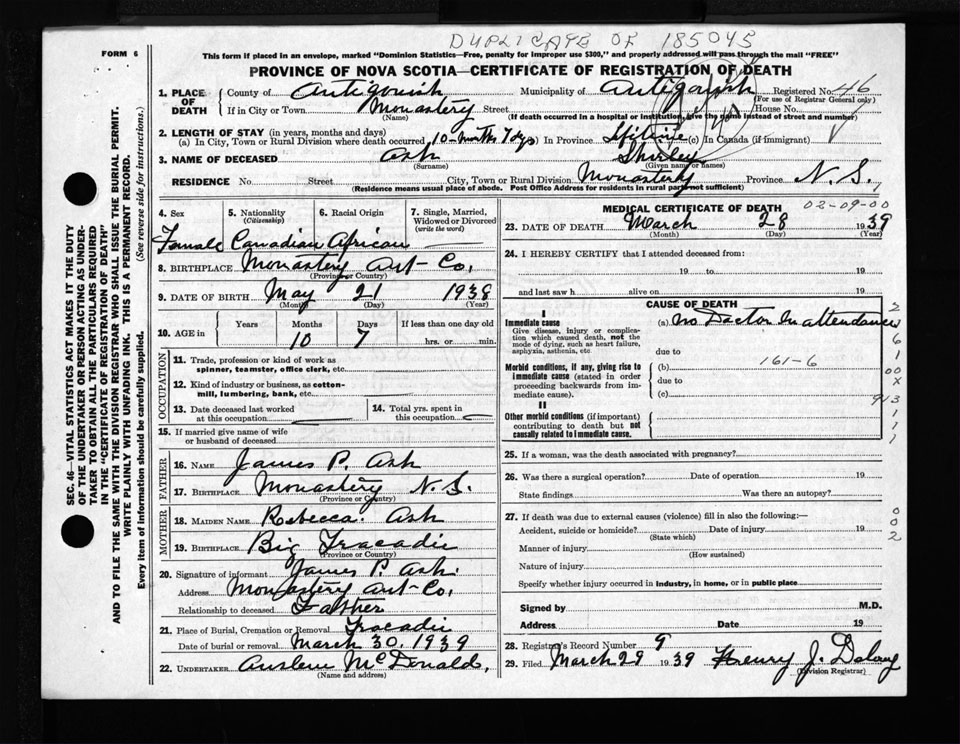 DUPLICATE OF 185045
FORM 6
This form if placed in an envelope, marked "Dominion Statistics—Free, penalty for improper use $300," and properly addressed will pass through the mail "FREE"
PROVINCE OF NOVA SCOTIA—CERTIFICATE OF REGISTRATION OF DEATH
1. PLACE OF DEATH { County of Antigonish Municipality of Antigonish Registered No. 46
(For use of Registrar General only)
If in City or Town Monastery Street House No.
(Name) (If death occurred in a hospital or institution, give the name instead of street and number)
2. LENGTH OF STAY (in years, months and days)
(a) In City, Town or Rural Division where death occurred 10 months 7 dys (b) In Province (c) In Canada (if immigrant)
3. NAME OF DECEASED Ash Shirley
(Surname) (Given name or names)
RESIDENCE No. Street City, Town or Rural Division Monastery Province N. S.
(Residence means usual place of abode. Post Office Address for residents in rural parts not sufficient)
4. Sex 5. Nationality (Citizenship) 6. Racial Origin 7. Single, Married, Widowed or Divorced (write the word)
Female Canadian African —
8. BIRTHPLACE Monastery Ant- Co,
(Province or Country)
9. DATE OF BIRTH May 21 1938
(Month) (Day) (Year)
10. AGE in Years Months Days If less than one day old
10 7 hrs. or min.
OCCUPATION
11. Trade, profession or kind of work as spinner, teamster, office clerk, etc.
12. Kind of industry or business, as cotton-mill, lumbering, bank, etc.
13. Date deceased last worked at this occupation
14. Total yrs. spent in this occupation
15. If married give name of wife or husband of deceased
FATHER
16. NAME James P. Ash
17. BIRTHPLACE Monastery N. S.
(Province or Country)
MOTHER
18. MAIDEN NAME Rebecca. Ash
19. BIRTHPLACE Big Tracadie
(Province or Country)
20. Signature of informant James P. Ash.
Address Monastery Ant- Co,
Relationship to deceased Father
21. Place of Burial, Cremation or Removal Tracadie
Date of burial or removal March 30, 1939
22. UNDERTAKER McDonald,
(Name and address)
MEDICAL CERTIFICATE OF DEATH 02-09-00
23. DATE OF DEATH March 28 1939
(Month) (Day) (Year)
24. I HEREBY CERTIFY that I attended deceased from:
19 to 19
and last saw h alive on 19
CAUSE OF DEATH
I
Immediate cause (a) No Doctor In attendance
Give disease, injury or complication which caused death, not the mode of dying, such as heart failure, asphyxia, asthenia, etc
due to
Morbid conditions, if any, giving rise to immediate cause (stated in order proceeding backwards from immediate cause). (b) 161-6
due to
(c)
II
Other morbid conditions (if important) contributing to death but not causally related to immediate cause.
2
6
1
00
X
9 3
1
1
1
25. If a woman, was the death associated with pregnancy?
26. Was there a surgical operation? Date of operation 19
State findings Was there an autopsy?
27. If death was due to external causes (violence) fill in also the following:—
Accident, suicide or homicide? Date of injury 19
(State which)
Manner of injury
(How sustained)
Nature of injury
Specify whether injury occurred in industry, in home, or in public place
0
0
2
Signed by M.D.
Address Date 19
28. Registrar's Record Number 9
29. Filed March 29 1939 Henry J.
(Division Registrar)
SEC. 46—VITAL STATISTICS ACT MAKES IT THE DUTY
OF THE UNDERTAKER OR PERSON ACTING AS UNDERTAKER
TO OBTAIN ALL THE PARTICULARS REQUIRED
IN THE "CERTIFICATE OF REGISTRATION OF DEATH"
AND TO FILE THE SAME WITH THE DIVISION REGISTRAR WHO SHALL ISSUE THE BURIAL PERMIT.
WRITE PLAINLY WITH UNFADING INK. THIS IS A PERMANENT RECORD.
Every item of information should be carefully supplied. (See reverse side for instructions.)